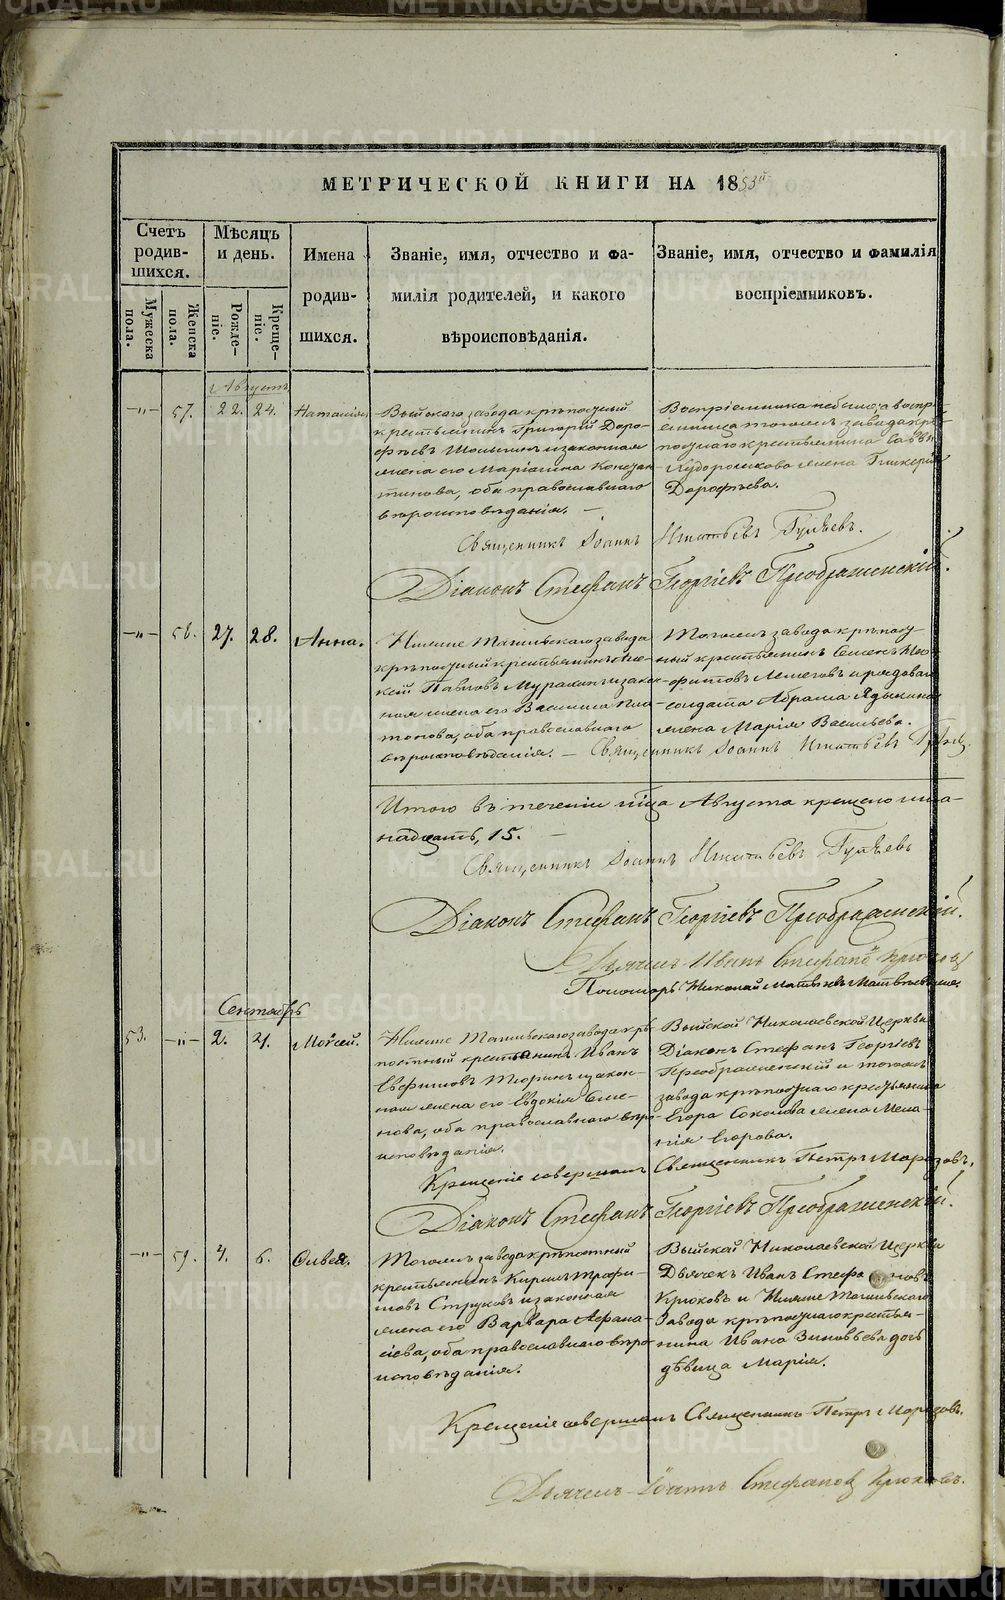 METRIKI.GASO-URAL.RU
МЕТРИЧЕСКОЙ КНИГИ НА 1853й
Счетъ родив-шихся.
Мужеска пола.
Женска пола.
Мѣсяцъ и день.
Рожде-ніе.
Креще-ніе.
Имена
родив-
шихся.
Званіе, имя, отчество и фа-
милія родителей, и какого
вѣроисповѣданія.
Званіе, имя, отчество и фамилія
воспріемниковъ.
Августъ
-"- 57. 22. 24. Наталія
Выйскаго завода крѣпостный
крестьянинъ Григорій Доро-
фѣевъ и законная
жена его Маріанна Констан-
тинова, оба православнаго
вѣроисповѣданія. —
Воспріемника небыло а воспрі-
емница тогожъ завода крѣ-
постнаго крестьянина Саввы
жена Гликерія
Дорофѣева.
Священникъ Іоаннъ Игнатьевъ Гуляевъ.
Діаконъ Стефанъ Георгіевъ Преображенскій.
-"- 58. 27. 28. Анна.
Нижне Тагильскаго завода
крѣпостный крестьянинъ Але-
ксій Павловъ и закон-
ная жена его Васса
оба православнаго
вѣроисповѣданія. —
Тогожъ завода крѣпост-
ный крестьянинъ Семенъ
и рядоваго
солдата Абрама
жена Марія Васильева.
Священникъ Іоаннъ Игнатьевъ Гуляевъ
Итого въ теченіи м͠ца Августа крещено пят-
надцать, 15. —
Священникъ Іоаннъ Игнатьевъ Гуляевъ
Діаконъ Стефанъ Георгіевъ Преображенскій.
Дьячекъ Иванъ Стефановъ Крюковъ
Пономарь Николай Матвѣевъ
Сентябрь
53. -"- 2. 4. Моѵсей.
Нижне Тагильскаго завода крѣ-
постный крестьянинъ Иванъ
Евфимовъ Тюринъ и закон-
ная жена его Евдокія Семе-
нова, оба православнаго вѣро-
исповѣданія.
Выйской Николаевской Церкви
Діаконъ Стефанъ Георгіевъ
Преображенскій и тогожъ
завода крѣпостнаго крестьянина
Егора Соколова жена Мела-
нія Егорова.
Крещеніе совершалъ Священникъ Петръ Морозовъ.
Діаконъ Стефанъ Георгіевъ Преображенскій.
-"- 59. 4. 6. Фивея.
Тогожъ завода крѣпостный
крестьянинъ Кирилъ Трофи-
мовъ Струковъ и законная
жена его Варвара Афана-
сіева, оба православнаго вѣро-
исповѣданія.
Выйской Николаевской Церкви
Дьячекъ Иванъ Стефановъ
Крюковъ и Нижне Тагильскаго
завода крѣпостнаго крестья-
нина Ивана Зиновьева дочь
дѣвица Марія.
Крещеніе совершалъ Священникъ Петръ Морозовъ.
Дьячекъ Іоаннъ Стефановъ Крюковъ.